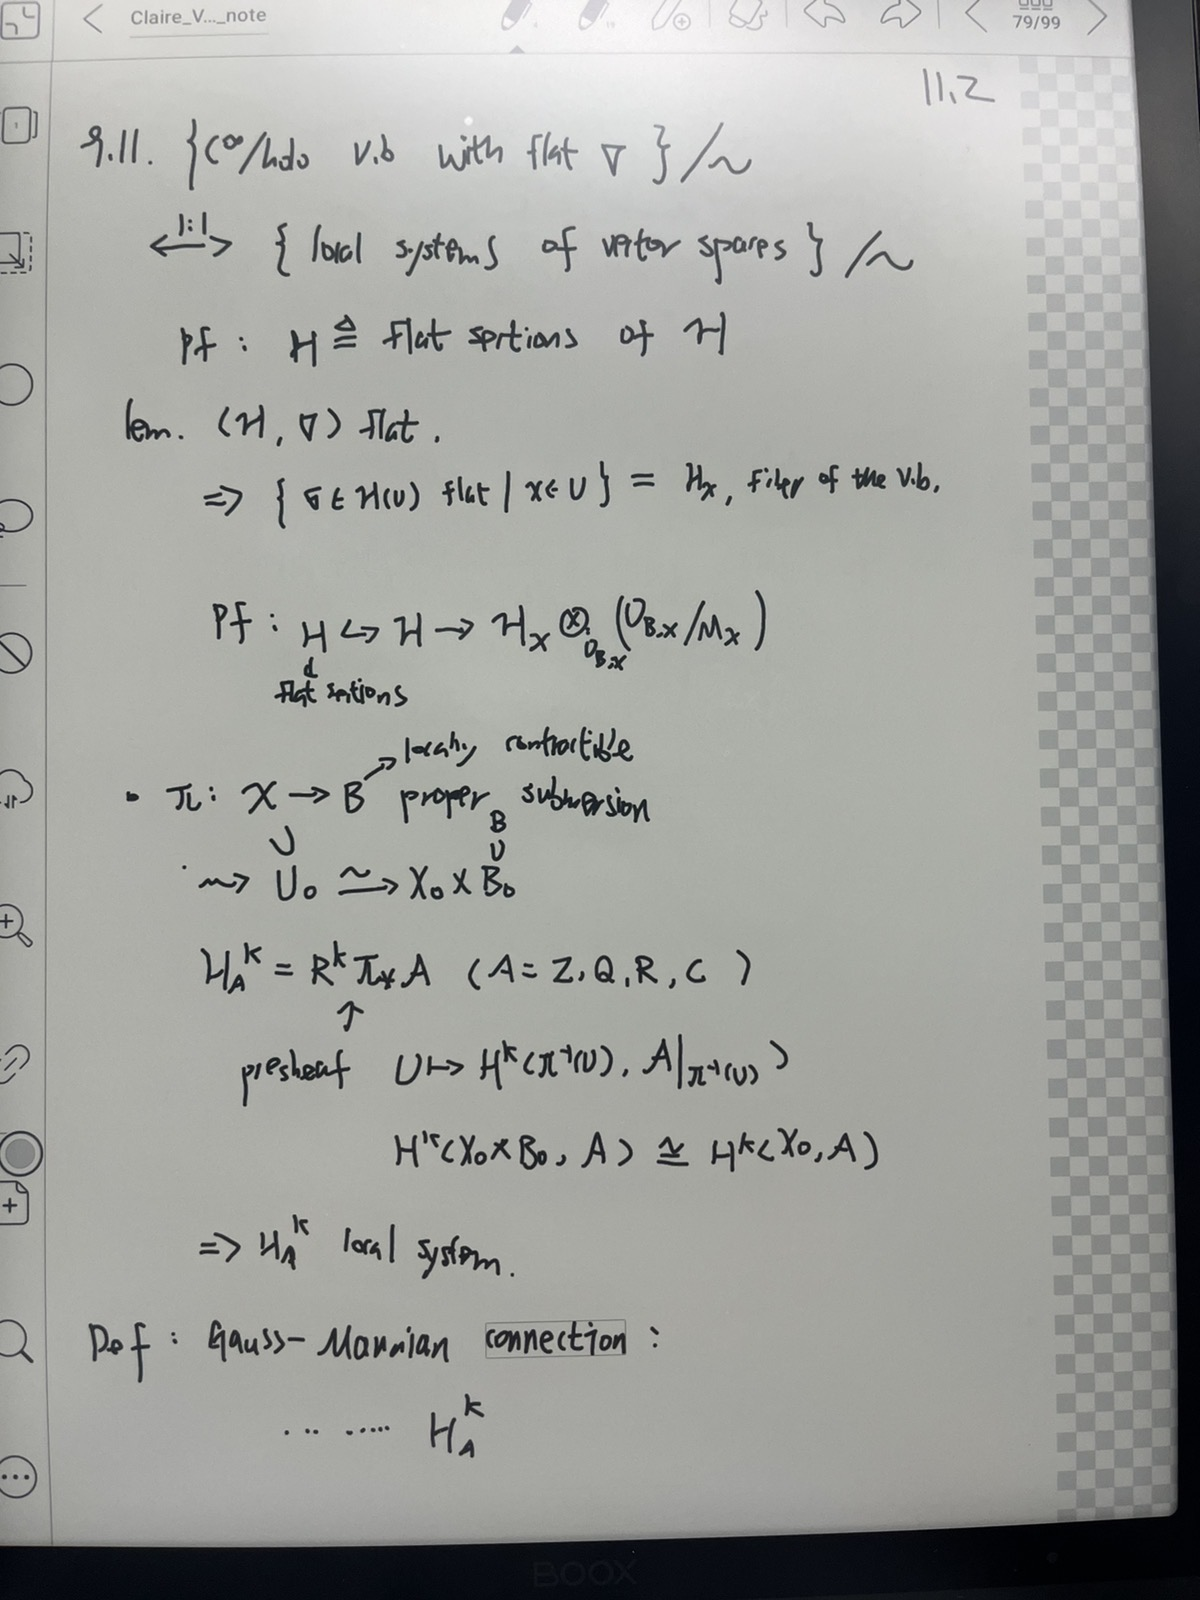 Claire_V..._note
79/99
11.2
9.11. {C∞/holo v.b with flat ∇}/~
<-1:1-> {local systems of vector spaces}/~
Pf : H ≜ flat sections of ℋ
lem. (ℋ, ∇) flat.
=> {σ ∈ ℋ(U) flat | x ∈ U} = ℋₓ, fiber of the v.b.
Pf : H ↪ ℋ → ℋₓ ⊗_{O_{B,x}} (O_{B,x}/Mₓ)
flat sections
locally contractible
• π : X → B proper submersion
∪ B ∪
⇝ U₀ ≃→ X₀ × B₀
H_A^k = R^k π_* A (A = Z, Q, R, C)
↑
presheaf U ↦ H^k(π⁻¹(U), A|_{π⁻¹(U)})
H^k(X₀ × B₀, A) ≅ H^k(X₀, A)
=> H_A^k local system.
Def : Gauss-Mannian connection :
.. ..... H_A^k
BOOX